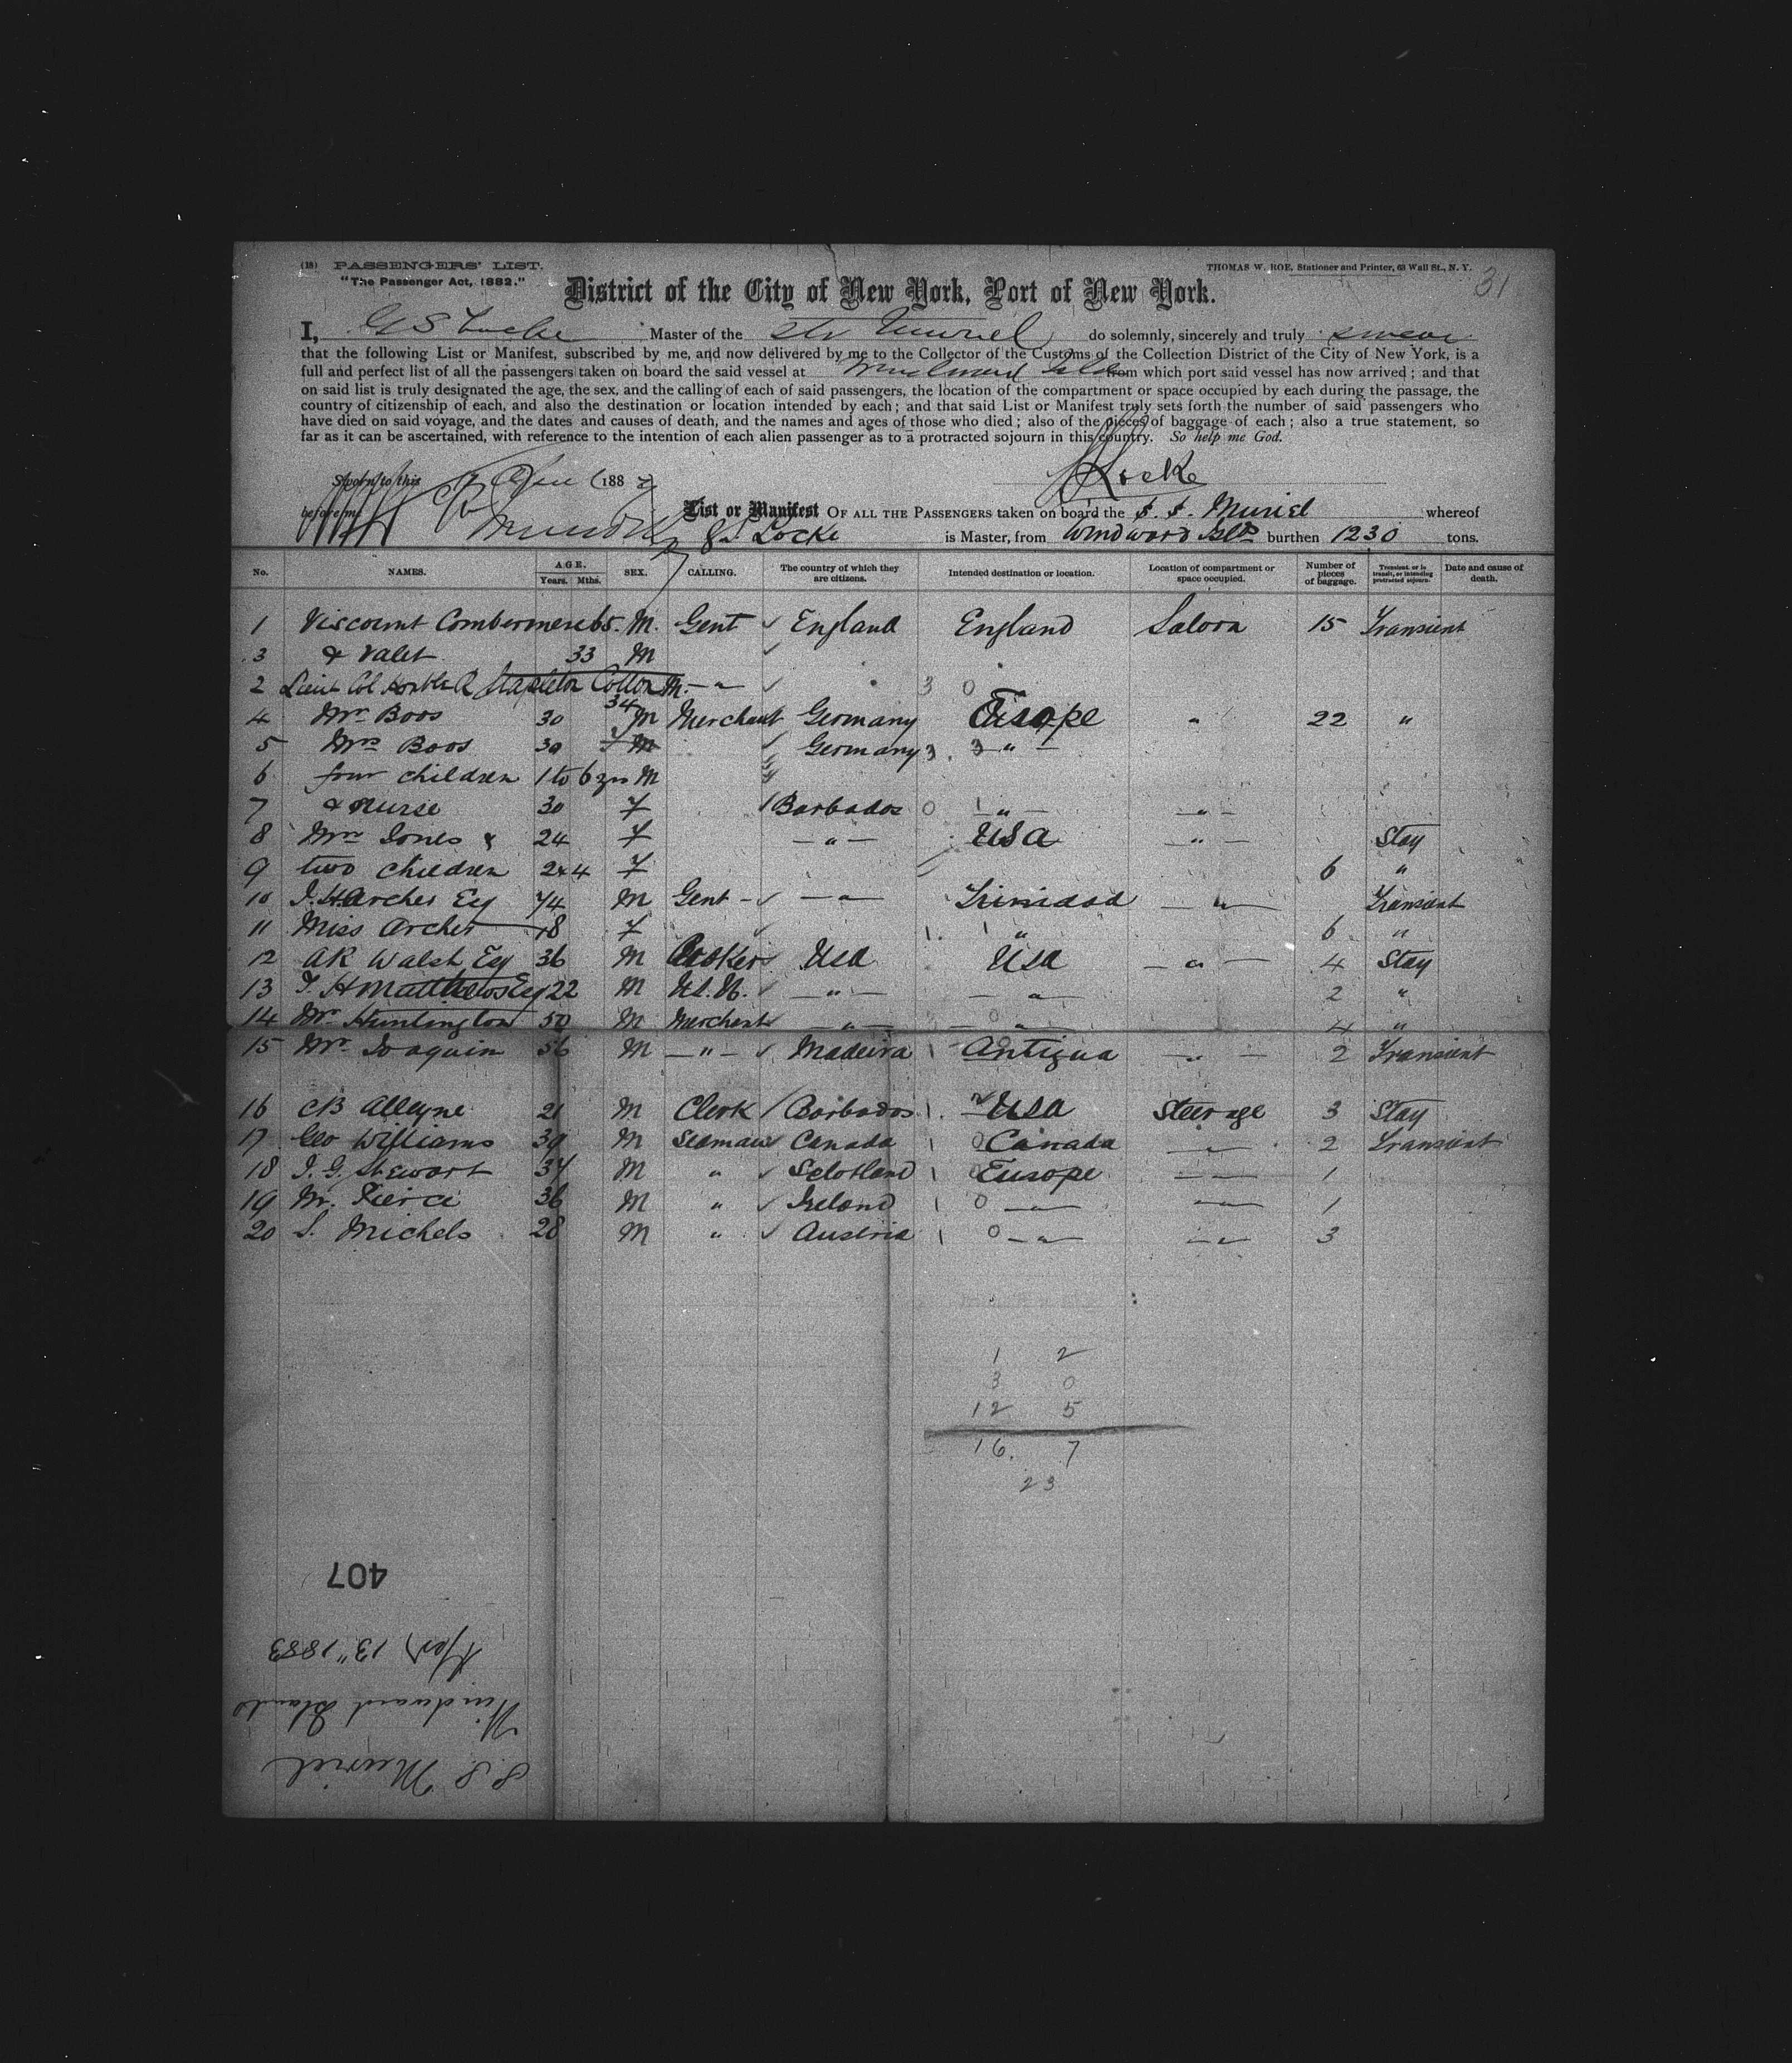 (18) PASSENGERS' LIST.
"The Passenger Act, 1882."
THOMAS W. ROE, Stationer and Printer, 63 Wall St., N. Y.
31
District of the City of New York, Port of New York.
I, G S Locke Master of the Str Muriel do solemnly, sincerely and truly swear
that the following List or Manifest, subscribed by me, and now delivered by me to the Collector of the Customs of the Collection District of the City of New York, is a
full and perfect list of all the passengers taken on board the said vessel at Windward Islds from which port said vessel has now arrived; and that
on said list is truly designated the age, the sex, and the calling of each of said passengers, the location of the compartment or space occupied by each during the passage, the
country of citizenship of each, and also the destination or location intended by each; and that said List or Manifest truly sets forth the number of said passengers who
have died on said voyage, and the dates and causes of death, and the names and ages of those who died; also of the pieces of baggage of each; also a true statement, so
far as it can be ascertained, with reference to the intention of each alien passenger as to a protracted sojourn in this country. So help me God.
Sworn to this 188
Locke
before me
List or Manifest OF ALL THE PASSENGERS taken on board the S. S. Muriel whereof
Locke is Master, from Windward Islds burthen 1230 tons.
No. NAMES. AGE. Years. Mths. SEX. CALLING. The country of which they are citizens. Intended destination or location. Location of compartment or space occupied. Number of pieces of baggage. Transient or in transit, or intending protracted sojourn. Date and cause of death.
1 Viscount Combermere 65. M. Gent England England Saloon 15 Transient
3 & Valet 33 M
2 Lieut Col Honble R Stapleton Cotton M. — " 3 0
34
4 Mr Boos 30 M Merchant Germany Europe " 22 "
5 Mrs Boos 30 f M Germany 3 3 — " —
6 four children 1 to 6 yrs M
7 & nurse 30 f Barbados 0 1 — " — — " —
8 Mrs Jones & 24 f — " — USA — " — Stay
9 two children 2 & 4 f 6 "
10 J. H Archer Esq 74 M Gent — " — Trinidad — " — Transient
11 Miss Archer 18 f 1 1 " 6 "
12 AR Walsh Esq 36 M Broker Usa Usa — " — 4 Stay
13 T. H Matthews Esq 22 M U.S.N. — " — — " — 2 "
14 Mr Huntington 50 M Merchant — " — — " — 4 "
15 Mr Joaquin 56 M — " — Madeira 1 Antigua — " — 2 Transient
16 CB Alleyne 21 M Clerk Barbados 1 USA Steerage 3 Stay
17 Geo Williams 39 M Seaman Canada 1 0 Canada — " — 2 Transient
18 J. G. Stewart 34 M " Scotland 1 0 Europe — " — 1
19 M. Pierce 36 M " Ireland 1 0 — " — — " — 1
20 S. Michels 28 M " Austria 1 0 — " — — " — 3
1 2
3 0
12 5
16. 7
23
407
S.S. Muriel
Windward Islands
Apr 13" 1883